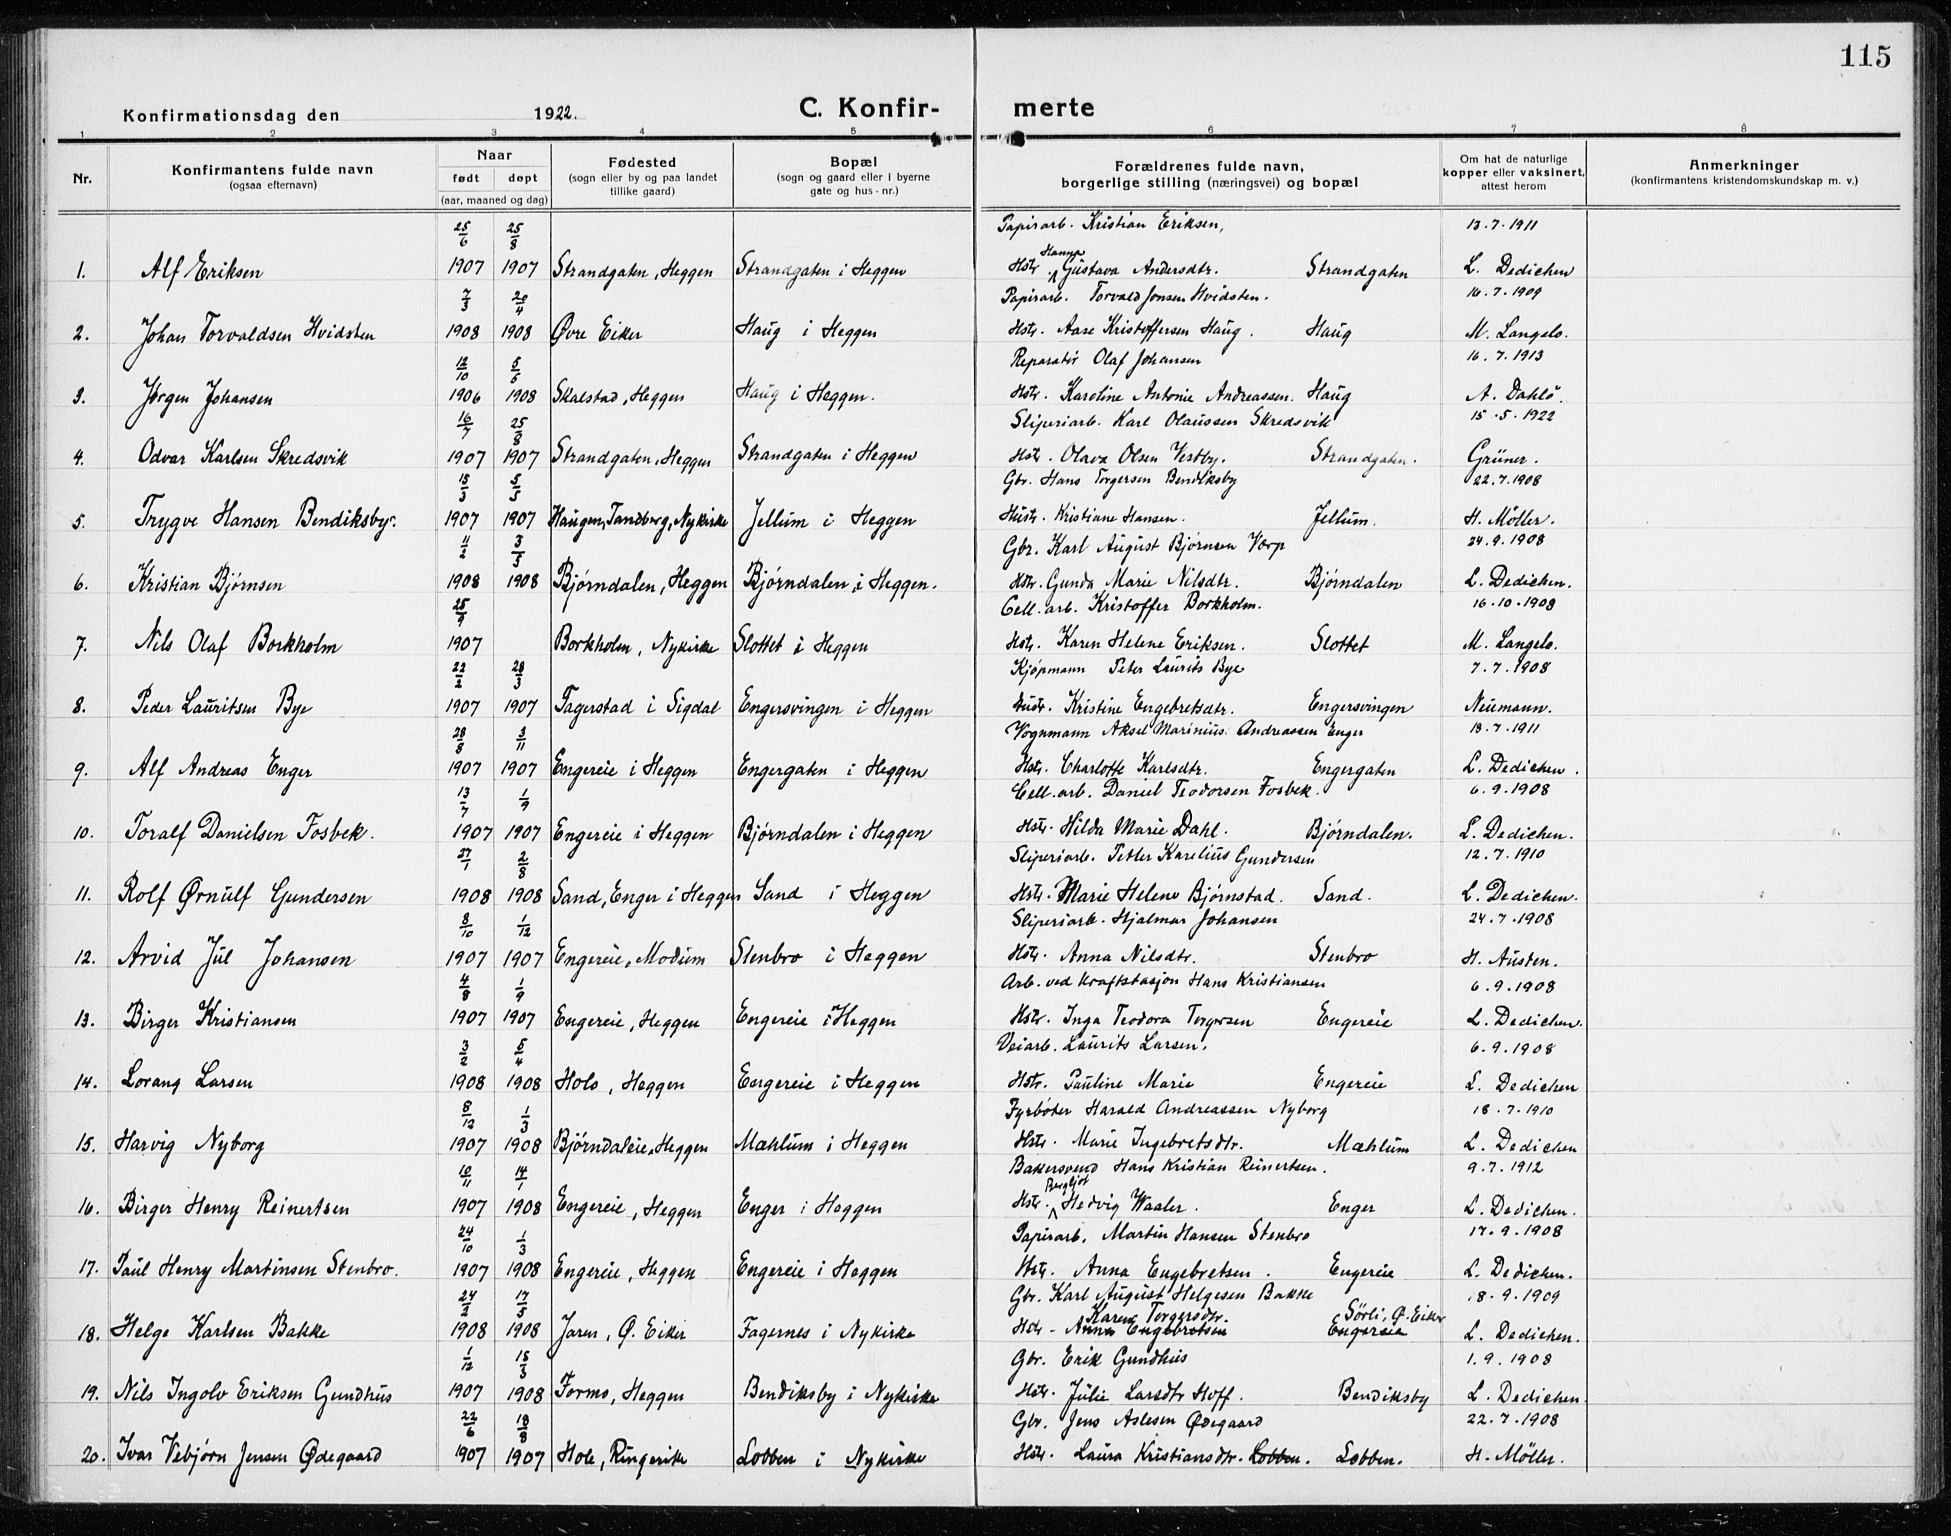 115
Konfirmationsdag den 1922. C. Konfir- merte
1 2 3 4 5 6 7 8
Nr. Konfirmantens fulde navn (ogsaa efternavn) Naar født døpt (aar, maaned og dag) Fødested (sogn eller by og paa landet tillike gaard) Bopæl (sogn og gaard eller i byerne gate og hus-nr.) Forældrenes fulde navn, borgerlige stilling (næringsvei) og bopæl Om hat de naturlige kopper eller vaksinert, attest herom Anmerkninger (konfirmantens kristendomskundskap m. v.)
25/6 25/8 Papirarb. Kristian Eriksen, 13.7.1911
1. Alf Eriksen 1907 1907 Strandgaten, Heggen Strandgaten i Heggen Hstr. Hanna Gustava Andersdtr. Strandgaten L. Dedichen
7/3 20/4 Papirarb. Torvald Jonsen Hvidsten. 16.7.1909
2. Johan Torvaldsen Hvidsten 1908 1908 Øvre Eiker Haug i Heggen Hstr. Aase Kristoffersen Haug. Haug M. Langelo.
12/10 5/5 Reparatör Olaf Johansen 16.7.1913
3. Jørgen Johansen 1906 1908 Skalstad, Heggen Haug i Heggen. Hstr. Karoline Antonie Andreassen. Haug A. Dahlö.
16/7 25/8 Sliperiarb. Karl Olaussen Skredsvik 15.5.1922
4. Odvar Karlsen Skredsvik 1907 1907 Strandgaten, Heggen Strandgaten i Heggen Hstr. Olava Olsen Vestby. Strandgaten. Grüner.
15/3 5/5 Gbr. Hans Torgersen Bendiksby 22.7.1908
5. Trygve Hansen Bendiksby. 1907 1907 Haugen, Tandberg, Nykirke Jellum i Heggen Hustr. Kristiane Hansen. Jellum. H. Möller.
11/2 3/5 Gbr. Karl August Bjørnsen Værp 24.9.1908
6. Kristian Bjørnsen 1908 1908 Bjørndalen, Heggen Bjørndalen i Heggen. Hstr. Gunda Marie Nilsdtr. Bjørndalen L. Dedichen.
25/9 Cell.arb. Kristoffer Borkholm. 16.10.1908
7. Nils Olaf Borkholm 1907 Borkholm, Nykirke Slottet i Heggen Hstr. Karen Helene Eriksen. Slottet M. Langelo.
22/2 28/3 Kjøpmann Peter Laurits Bye 7.7.1908
8. Peder Lauritsen Bye 1907 1907 Fagerstad i Sigdal Engersvingen i Heggen Hustr. Kristine Engebretsdtr. Engersvingen Neumann.
28/8 3/11 Vognmann Aksel Marinius Andreassen Enger 18.7.1911
9. Alf Andreas Enger 1907 1907 Engereie i Heggen Engergaten i Heggen Hstr. Charlotte Karlsdtr. Engergaten L. Dedichen.
13/7 1/9 Cell.arb. Daniel Teodorsen Fosbek. 6.9.1908
10. Toralf Danielsen Fosbek. 1907 1907 Engereie i Heggen Bjørndalen i Heggen Hstr. Hilda Marie Dahl. Bjørndalen. L. Dedichen.
27/1 2/8 Sliperiarb. Petter Karelius Gundersen 12.7.1910
11. Rolf Ørnulf Gundersen 1908 1908 Sand, Enger i Heggen Sand i Heggen Hstr. Marie Helene Bjørnstad. Sand. L. Dedichen.
8/10 1/12 Sliperiarb. Hjalmar Johansen 24.7.1908
12. Arvid Jul Johansen 1907 1907 Engereie, Modum Stenbro i Heggen Hstr. Anna Nilsdtr. Stenbro H. Austen.
4/8 1/9 Arb. ved Kraftstasjon Hans Kristiansen 6.9.1908
13. Birger Kristiansen 1907 1907 Engereie, Heggen Engereie i Heggen Hstr. Inga Teodora Torgersen Engereie L. Dedichen.
3/2 5/4 Veiarb. Laurits Larsen. 6.9.1908
14. Lorang Larsen 1908 1908 Hols, Heggen Engereie i Heggen Hstr. Pauline Marie Engereie L. Dedichen
8/12 1/3 Fyrbøter Harald Andreassen Nyborg 18.7.1910
15. Harvig Nyborg 1907 1908 Bjørndaleie, Heggen Mæhlum i Heggen Hstr. Marie Ingebretsdtr. Mæhlum L. Dedichen
10/11 14/1 Bakersvend Hans Kristian Reinertsen. 9.7.1912
16. Birger Henry Reinertsen 1907 1908 Engereie, Heggen Enger i Heggen Hstr. Bergljot Hedvig Waaler. Enger L. Dedichen.
24/10 1/3 Papirarb. Martin Hansen Stenbro 17.9.1908
17. Paul Henry Martinsen Stenbro. 1907 1908 Engereie, Heggen Engereie i Heggen Hstr. Anna Engebretsen. Engereie L. Dedichen.
24/2 17/5 Gbr. Karl August Helgesen Bakke 18.9.1909
Karen Torgersdtr. Sörli, Ø. Eiker
18. Helge Karlsen Bakke 1908 1908 Jaren, Ø. Eiker Fagernes i Nykirke Hstr. Anna Engebretsen Engereie L. Dedichen.
1/12 15/3 Gbr. Erik Gundhus 1.9.1908
19. Nils Ingolv Eriksen Gundhus 1907 1908 Formo, Heggen Bendiksby i Nykirke Hstr. Julie Larsdtr Hoff. Bendiksby L. Dedichen.
22/6 18/8 Gbr. Jens Aslesen Ødegaard 22.7.1908
20. Ivar Vebjørn Jensen Ødegaard 1907 1907 Hole, Ringerike Lobben i Nykirke Hstr. Laura Kristiansdtr. Lobben. Lobben. H. Möller.